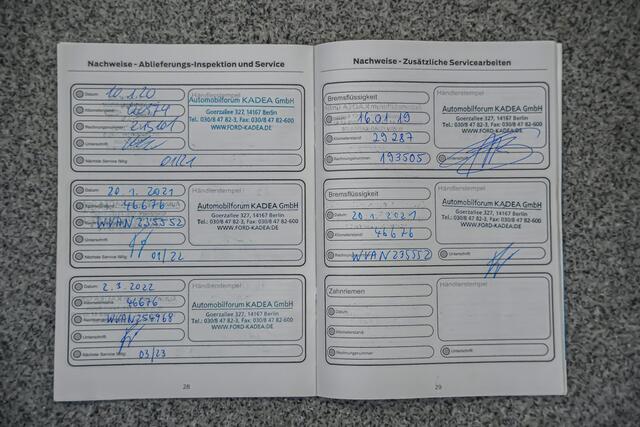 Nachweise - Ablieferungs-Inspektion und Service
Datum 10.1.20
Händlerstempel
Automobilforum KADEA GmbH
Goerzallee 327, 14167 Berlin
Tel.: 030/8 47 82-3, Fax: 030/8 47 82-600
WWW.FORD-KADEA.DE
Kilometerstand
Rechnungsnummer
Unterschrift
Nächste Service fällig 01/21
Datum 20.1.2021
Händlerstempel
Automobilforum KADEA GmbH
Goerzallee 327, 14167 Berlin
Tel.: 030/8 47 82-3, Fax: 030/8 47 82-600
WWW.FORD-KADEA.DE
46676
WVAN235552
Unterschrift
Nächste Service fällig 01/22
Datum 2.3.2022
Händlerstempel
Automobilforum KADEA GmbH
Goerzallee 327, 14167 Berlin
Tel.: 030/8 47 82-3, Fax: 030/8 47 82-600
WWW.FORD-KADEA.DE
46676
WVAN254968
Unterschrift
Nächste Service fällig 03/23
28
Nachweise - Zusätzliche Servicearbeiten
Bremsflüssigkeit
Händlerstempel
Automobilforum KADEA GmbH
Goerzallee 327, 14167 Berlin
Tel.: 030/8 47 82-3, Fax: 030/8 47 82-600
WWW.FORD-KADEA.DE
16.01.19
Kilometerstand 29287
Rechnungsnummer 193505
Unterschrift
Bremsflüssigkeit
Händlerstempel
Automobilforum KADEA GmbH
Goerzallee 327, 14167 Berlin
Tel.: 030/8 47 82-3, Fax: 030/8 47 82-600
WWW.FORD-KADEA.DE
Datum 20.1.2021
Kilometerstand 46676
WVAN235552
Unterschrift
Zahnriemen
Händlerstempel
Datum
Kilometerstand
Rechnungsnummer
Unterschrift
29